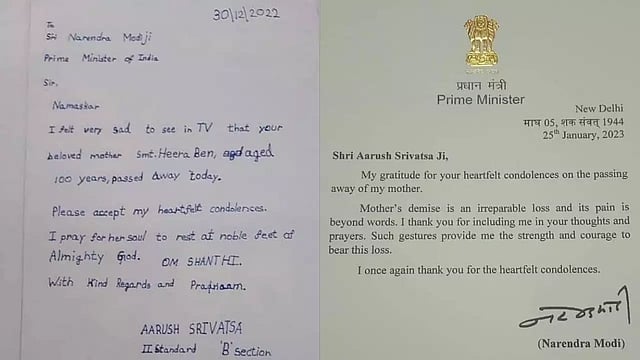 30/12/2022
To
Sri Narendra Modiji
Prime Minister of India
Sir,
Namaskar
I felt very sad to see in TV that your
beloved mother Smt. Heera Ben, aged
100 years, passed away today.
Please accept my heartfelt condolences.
I pray for her soul to rest at noble feet of
Almighty God. OM SHANTHI.
With Kind Regards and Pranaam.
AARUSH SRIVATSA
II Standard 'B' section
प्रधान मंत्री
Prime Minister
New Delhi
माघ 05, शक संवत् 1944
25th January, 2023
Shri Aarush Srivatsa Ji,
My gratitude for your heartfelt condolences on the passing
away of my mother.
Mother's demise is an irreparable loss and its pain is
beyond words. I thank you for including me in your thoughts and
prayers. Such gestures provide me the strength and courage to
bear this loss.
I once again thank you for the heartfelt condolences.
(Narendra Modi)